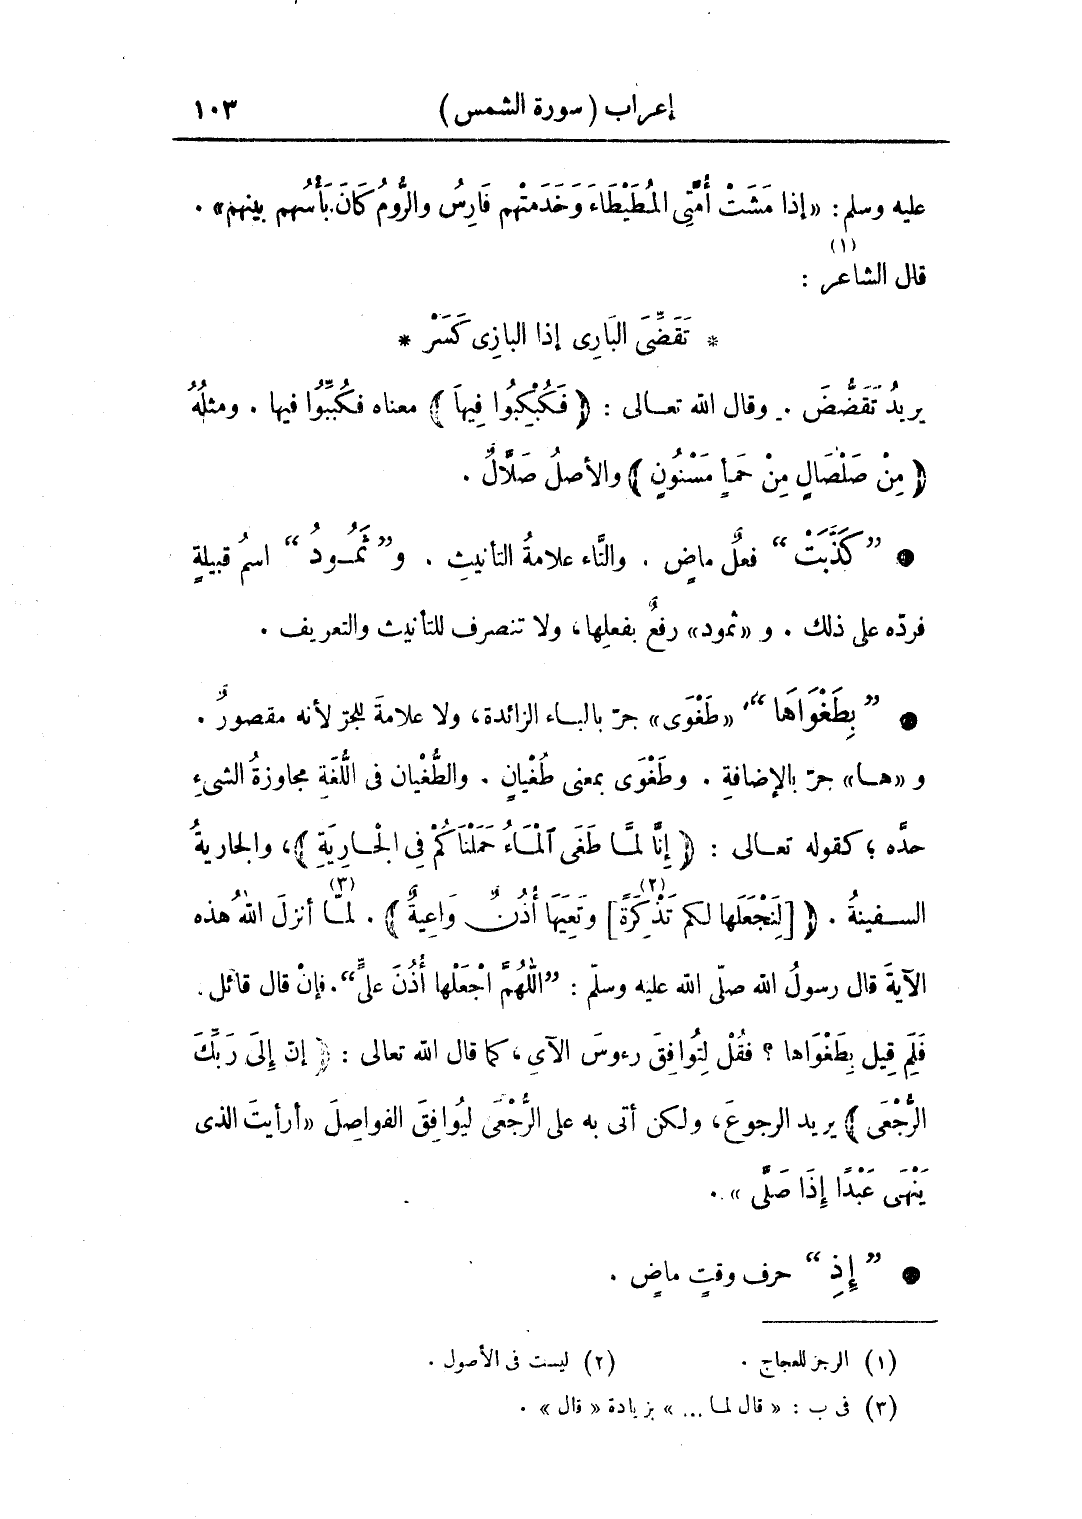 إعراب ( سورة الشمس ) ١٠٣
عليه وسلم : «إذا مَشَتْ أُمَّتِى المُطَيْطَاءَ وَخَدَمَتْهم فَارِسُ والرُّومُ كَانَ بَأْسُهم بينهم» .
قال الشاعر (١) :
* تَقَضِّىَ البَازِى إذا البازِى كَسَرْ *
يريدُ تَقَضُّضَ . وقال الله تعـالى : ﴿ فَكُبْكِبُوا فِيهَا ﴾ معناه فكُبِّبُوا فيها . ومثلُهُ
﴿ مِنْ صَلْصَالٍ مِنْ حَمَإٍ مَسْنُونٍ ﴾ والأصلُ صَلَّالٌ .
● ” كَذَّبَتْ “ فعلٌ ماضٍ . والتَّاء علامةُ التأنيثِ . و” ثَمُـودُ “ اسمُ قبيلةٍ
فردّه على ذلك . و «ثمود» رفعٌ بفعلِها، ولا تنصرف للتأنيث والتعريف .
● ” بِطَغْوَاهَا “، «طَغْوَى» جرّ بالبـاء الزائدة، ولا علامةَ للجرّ لأنه مقصورٌ .
و «هـا» جرّ بالإضافةِ . وطَغْوَى بمعنى طُغْيانٍ . والطُّغْيان فى اللُّغَةِ مجاوزةُ الشىءِ
حدَّه ؛ كقوله تعـالى : ﴿ إِنَّا لَمَّـا طَغَى ٱلْمَـاءُ حَمَلْنَاكُمْ فِى الْجَـارِيَةِ ﴾، والجاريةُ
السـفينةُ . ﴿ [لِنَجْعَلَها لكم تَذْكِرَةً] (٢) وتَعِيَهَا أُذُنٌ وَاعِيةٌ ﴾ . لمّـا (٣) أنزلَ اللهُ هذه
الآيةَ قال رسولُ الله صلّى الله عليه وسلّم : ”اللّهُمَّ اجْعَلْها أُذُنَ علىٍّ“. فإنْ قال قائل .
فَلِمَ قِيل بِطَغْوَاها ؟ فقُلْ لِتُوافِقَ رءوسَ الآىِ ، كما قال الله تعالى : ﴿ إنّ إِلَى رَبِّكَ
الرُّجْعَى ﴾ يريد الرجوعَ، ولكن أتى به على الرُّجْعَى ليُوافِقَ الفواصِلَ «أرأيتَ الذى
يَنْهَى عَبْدًا إِذَا صَلَّى » .
● ” إِذِ “ حرف وقتٍ ماضٍ .
(١) الرجز للعجاج . (٢) ليست فى الأصول .
(٣) فى ب : « قال لمـا ... » بزيادة « قال » .